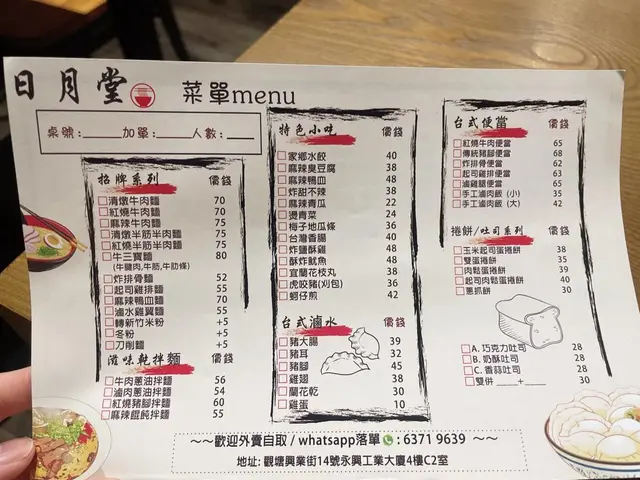 日月堂
菜單menu
桌號:_____加單:_____人數:____
招牌系列 價錢
清燉牛肉麵 70
紅燒牛肉麵 70
麻辣牛肉麵 75
清燉半筋半肉麵 75
紅燒半筋半肉麵 75
牛三寶麵 80
(牛腱肉,牛筋,牛肋條)
炸排骨麵 52
起司雞排麵 55
麻辣鴨血麵 70
滷水雞翼麵 55
轉新竹米粉 +5
冬粉 +5
刀削麵 +5
滋味乾拌麵 價錢
牛肉蔥油拌麵 56
滷肉蔥油拌麵 54
紅燒豬腳拌麵 60
麻辣餛飩拌麵 55
特色小吃 價錢
家鄉水餃 40
麻辣臭豆腐 38
麻辣鴨血 48
炸甜不辣 38
麻辣青瓜 22
燙青菜 24
梅子地瓜條 36
台灣香腸 40
炸鹽酥雞 48
酥炸魷魚 48
宜蘭花枝丸 38
虎咬豬(刈包) 36
蚵仔煎 42
台式滷水 價錢
豬大腸 39
豬耳 32
豬腳 45
雞翅 38
蘭花乾 30
雞蛋 10
台式便當 價錢
紅燒牛肉便當 65
傳統豬腳便當 68
炸排骨便當 62
起司雞排便當 63
滷雞腿便當 65
手工滷肉飯 (小) 35
手工滷肉飯 (大) 42
捲餅/吐司系列 價錢
玉米起司蛋捲餅 38
雙蛋捲餅 35
肉鬆蛋捲餅 39
起司肉鬆蛋捲餅 40
蔥抓餅 30
A. 巧克力吐司 28
B. 奶酥吐司 28
C. 香蒜吐司 28
雙併 ____+____ 30
~~歡迎外賣自取 / whatsapp落單 : 6371 9639 ~~
地址: 觀塘興業街14號永興工業大廈4樓C2室